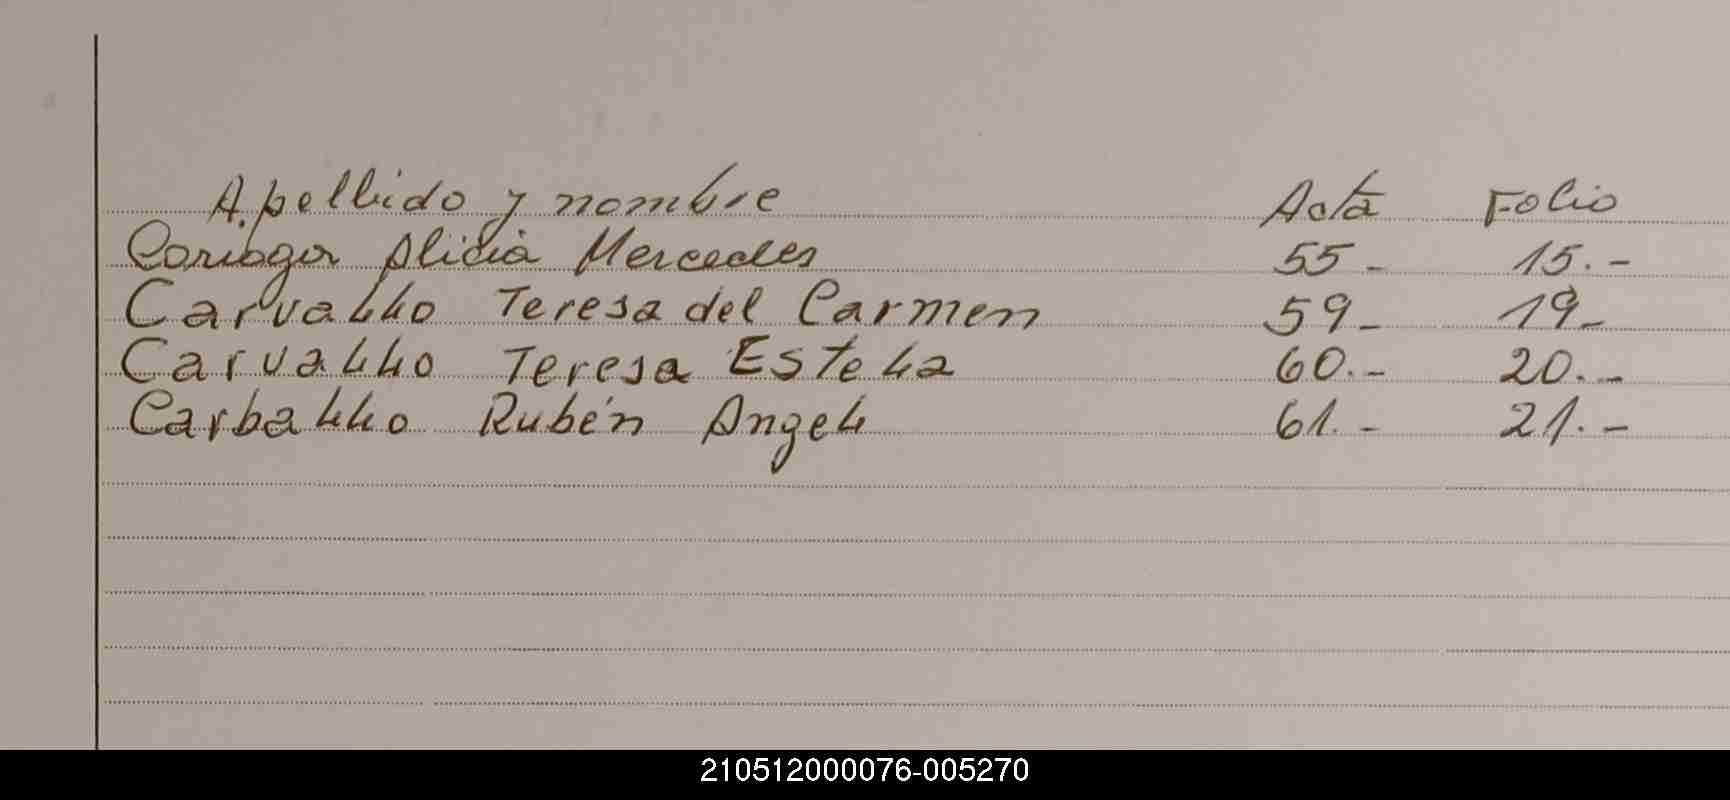 Apellido y nombre Acta Folio
Coriaga Alicia Mercedes 55- 15.-
Carvallo Teresa del Carmen 59- 19-
Carvallo Teresa Estela 60.- 20.-
Carballo Rubén Angel 61.- 21.-
210512000076-005270